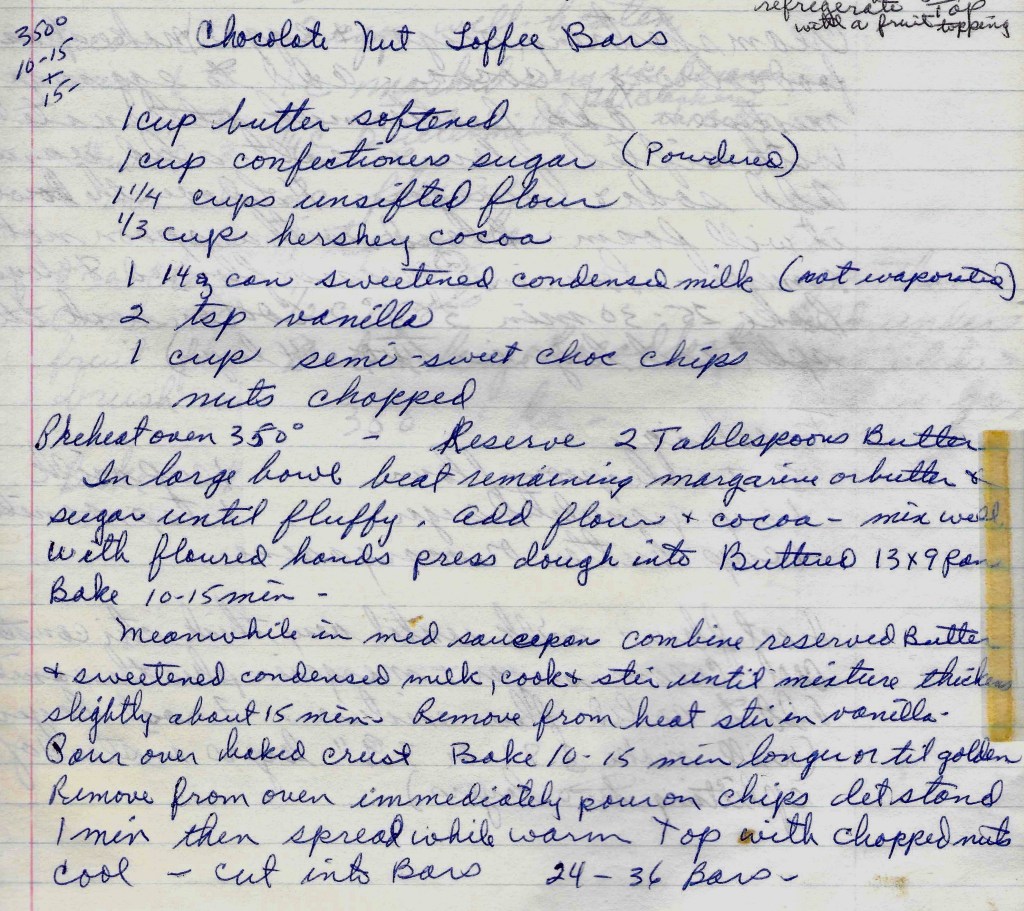 refrigerate Top
with a fruit topping
350°
10-15
+
15-
Chocolate Nut Toffee Bars
1 cup butter softened
1 cup confectioners sugar (Powdered)
1 1/4 cups unsifted flour
1/3 cup hershey cocoa
1 14 oz can sweetened condensed milk (not evaporated)
2 tsp vanilla
1 cup semi-sweet choc chips
nuts chopped
Preheat oven 350° - Reserve 2 Tablespoons Butter
In large bowl beat remaining margarine or butter &
sugar until fluffy. add flour + cocoa - mix well
With floured hands press dough into Buttered 13x9 pan
Bake 10-15 min -
Meanwhile in med saucepan combine reserved Butter
+ sweetened condensed milk, cook + stir until mixture thickens
slightly about 15 min. Remove from heat stir in vanilla.
Pour over baked crust Bake 10-15 min longer or til golden
Remove from oven immediately pour on chips let stand
1 min then spread while warm Top with chopped nuts
Cool - cut into Bars 24-36 Bars-